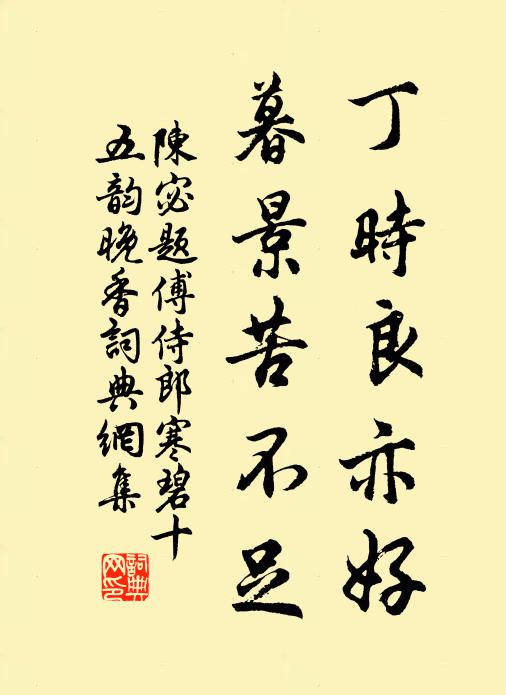 丁時良亦好
暮景苦不足
陳宓題傅侍郎寒碧十
五韵晚香詞典網集
詞典
网印